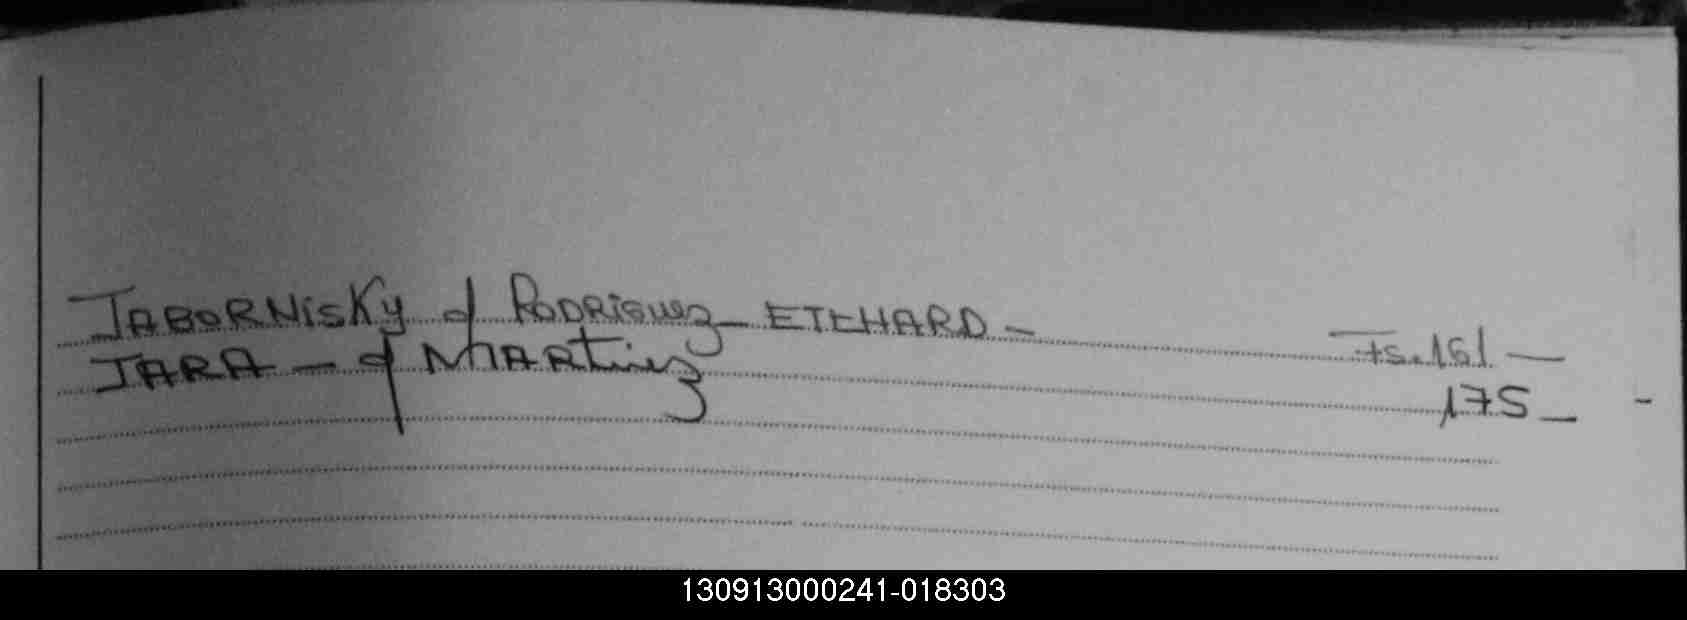 JABORNISKY y RODRIGUEZ_ ETEHARD - Fs.161 —
JARA - y MARtinez 175 _ -
130913000241-018303